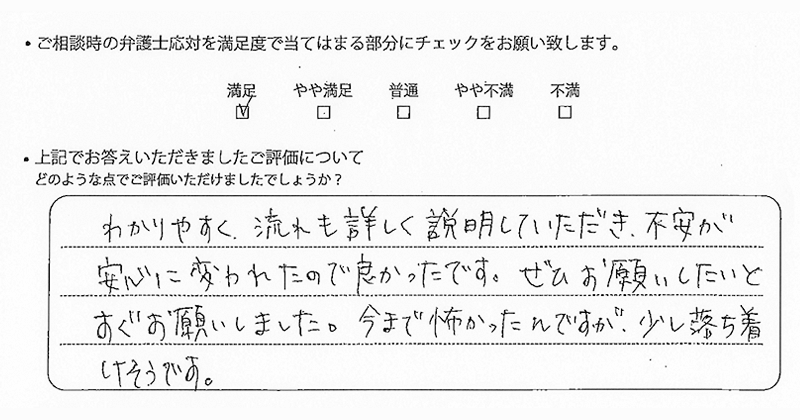 ・ご相談時の弁護士応対を満足度で当てはまる部分にチェックをお願い致します。
満足 やや満足 普通 やや不満 不満
☑ □ □ □ □
・上記でお答えいただきましたご評価について
どのような点でご評価いただけましたでしょうか？
わかりやすく、流れも詳しく説明していただき、不安が
安心に変われたので良かったです。ぜひお願いしたいと
すぐお願いしました。今まで怖かったんですが、少し落ち着
けそうです。